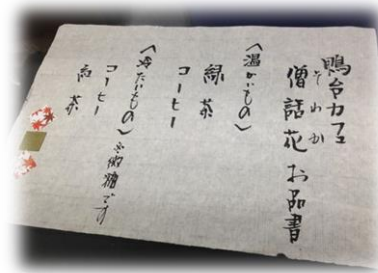 鴨台カフェ
そわか
僧話花 お品書
〈温かいもの〉
緑茶
コーヒー
〈冷たいもの〉※微糖です
コーヒー
緑茶